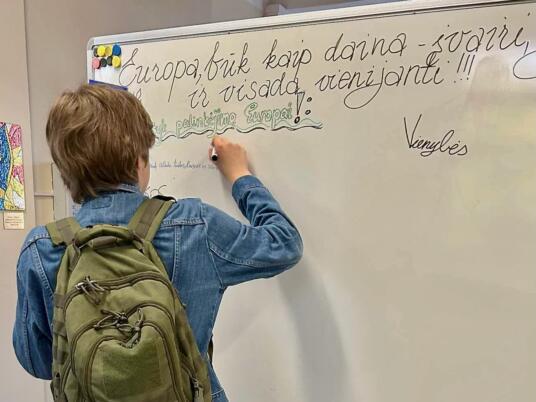 Europa, būk kaip daina - įvairi,
ir visada vienijanti!!!
palinkėjimą Europai!
Vienybės